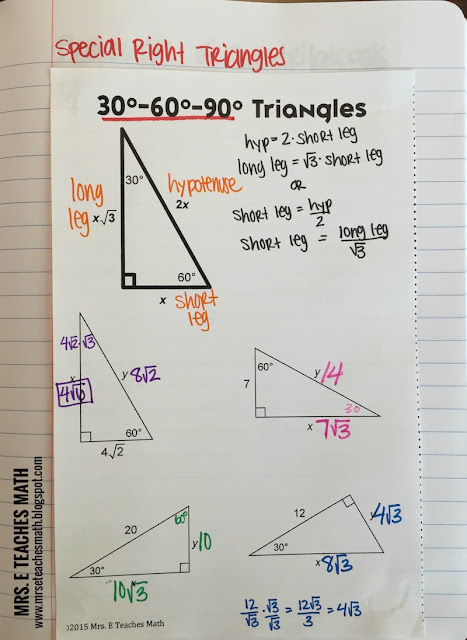 Special Right Triangles
30°-60°-90° Triangles
hyp = 2·short leg
long leg = √3·short leg
OR
short leg = hyp/2
short leg = long leg/√3
30°
long
leg
x√3
hypotenuse
2x
60°
x
short
leg
4√2·√3
x
4√6
y
8√2
60°
4√2
60°
7
y
14
30
x
7√3
20
60°
y
10
30°
x
10√3
12
y
4√3
30°
x
8√3
12/√3 · √3/√3 = 12√3/3 = 4√3
©2015 Mrs. E Teaches Math
MRS. E TEACHES MATH
www.mrseteachesmath.blogspot.com